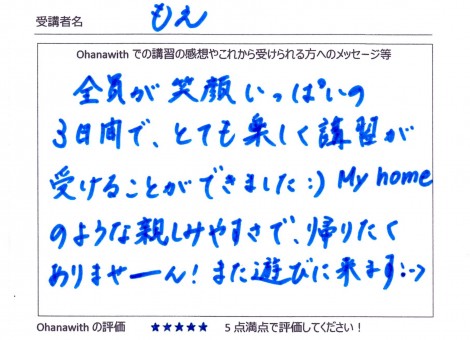 受講者名 もえ
Ohanawith での講習の感想やこれから受けられる方へのメッセージ等
全員が笑顔いっぱいの
3日間で、とても楽しく講習が
受けることができました:) My home
のような親しみやすさで、帰りたく
ありませーん！また遊びに来ます:->
Ohanawith の評価 ★★★★★ 5点満点で評価してください！